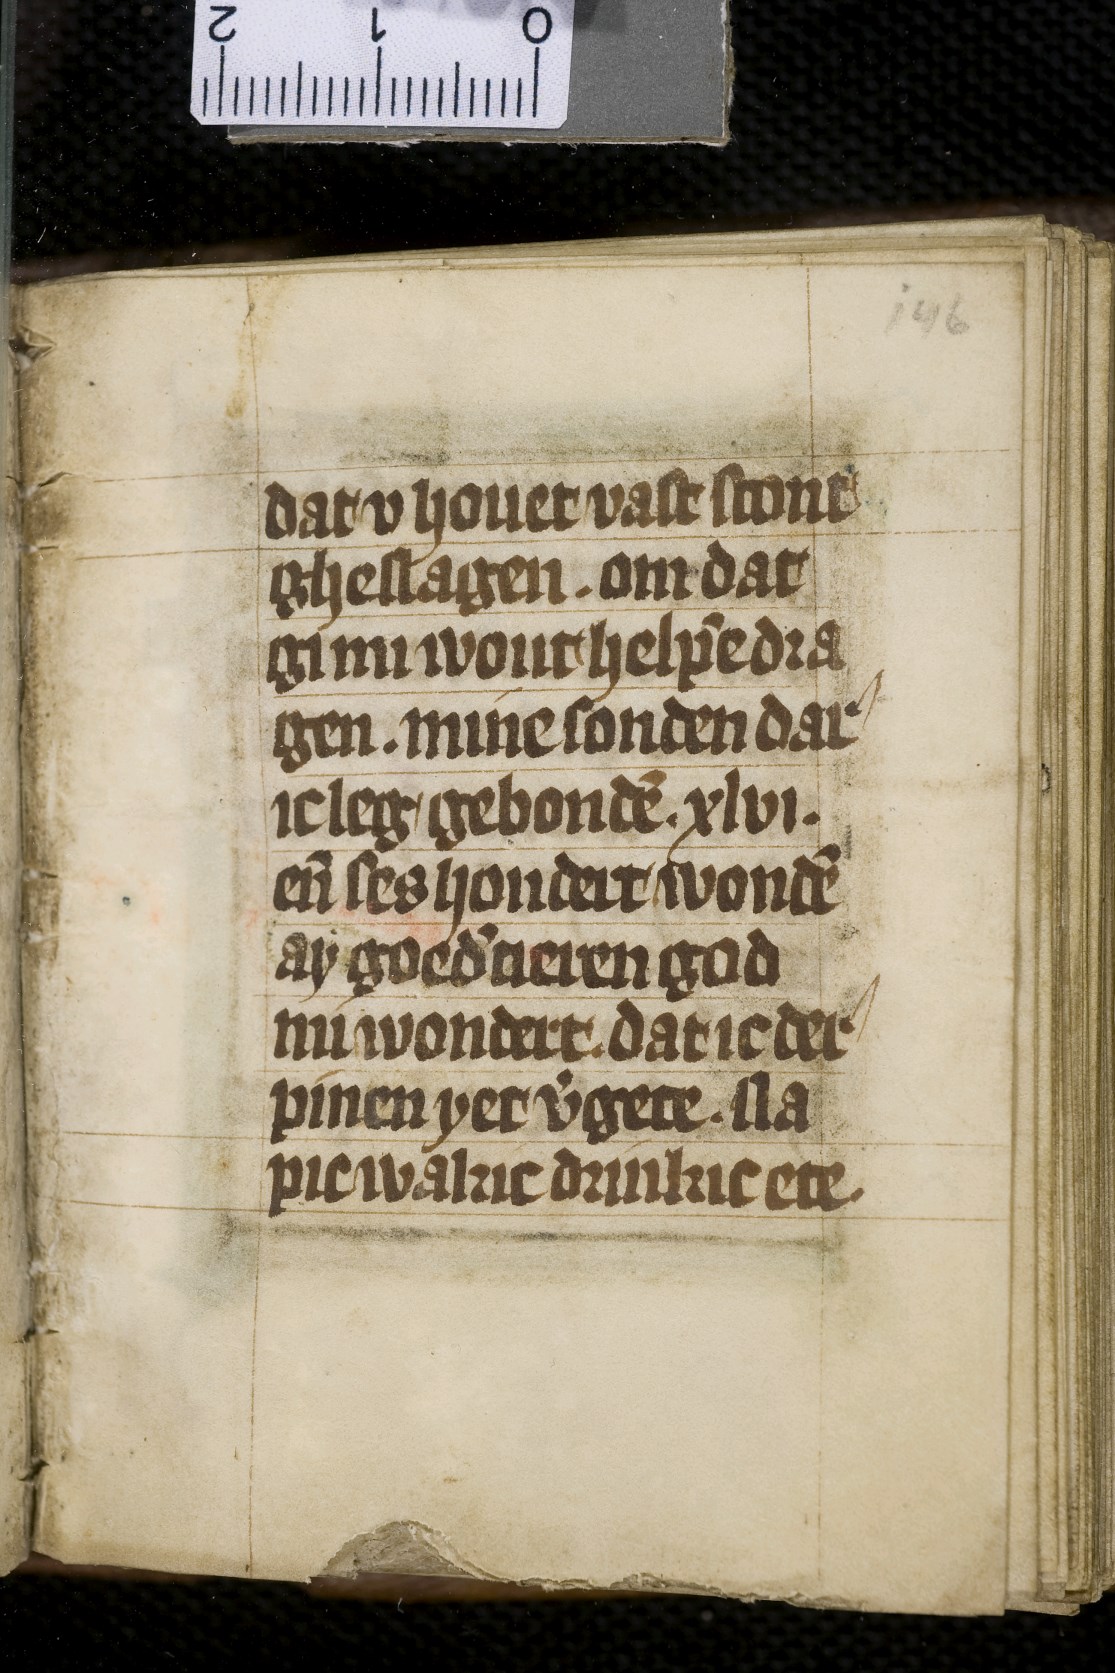 2 1 0
i46
dat v houet vast stont
gheslagen. om dat
gi mi wout help̄e dra
gen. mine sonden dar
ic leg gebondē. xlvi.
en̄ ses hondert wondē
ay goed͛tieren god
mi wondert. dat ic der
pinen yet v͛gete. sla
pic walric drinkic ete.